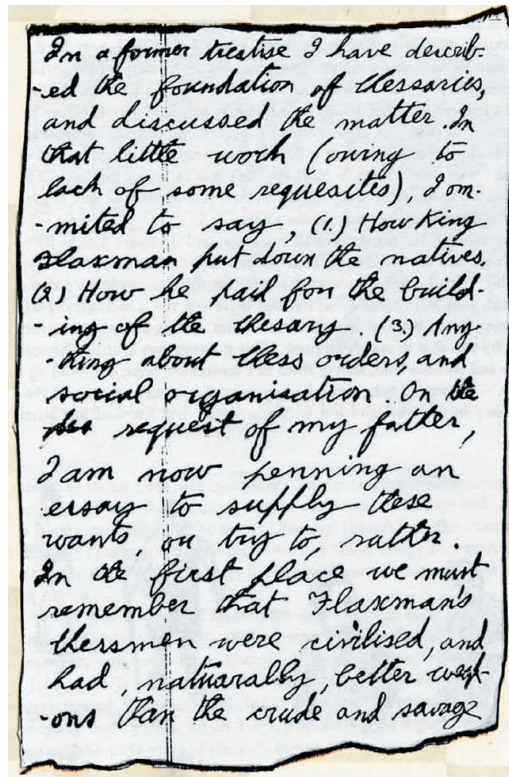 In a former treatise I have describ-
-ed the foundation of Chessaries,
and discussed the matter. In
that little work (owing to
lack of some requesites), I om-
-mited to say, (1.) How King
Flaxman put down the natives,
(2) How he paid for the build-
-ing of the chesary. (3.) Any-
thing about chess orders, and
social organisation. On the
request of my father,
I am now penning an
essay to supply these
wants, or try to, rather.
In the first place we must
remember that Flaxman's
chessmen were civilised, and
had, natuarally, better weap-
-ons than the crude and savage